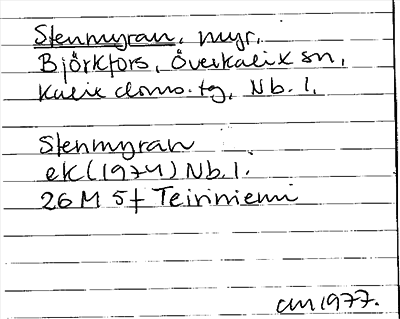 Stenmyran, myr,
Björkfors, Överkalix sn,
Kalix doms. tg, Nb. l.
Stenmyran
ek (1974) Nb. l.
26 M 5f Teiriniemi
1977.